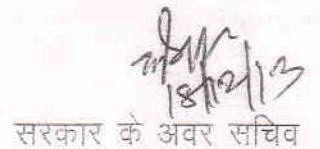 18/12/13
सरकार के अवर सचिव